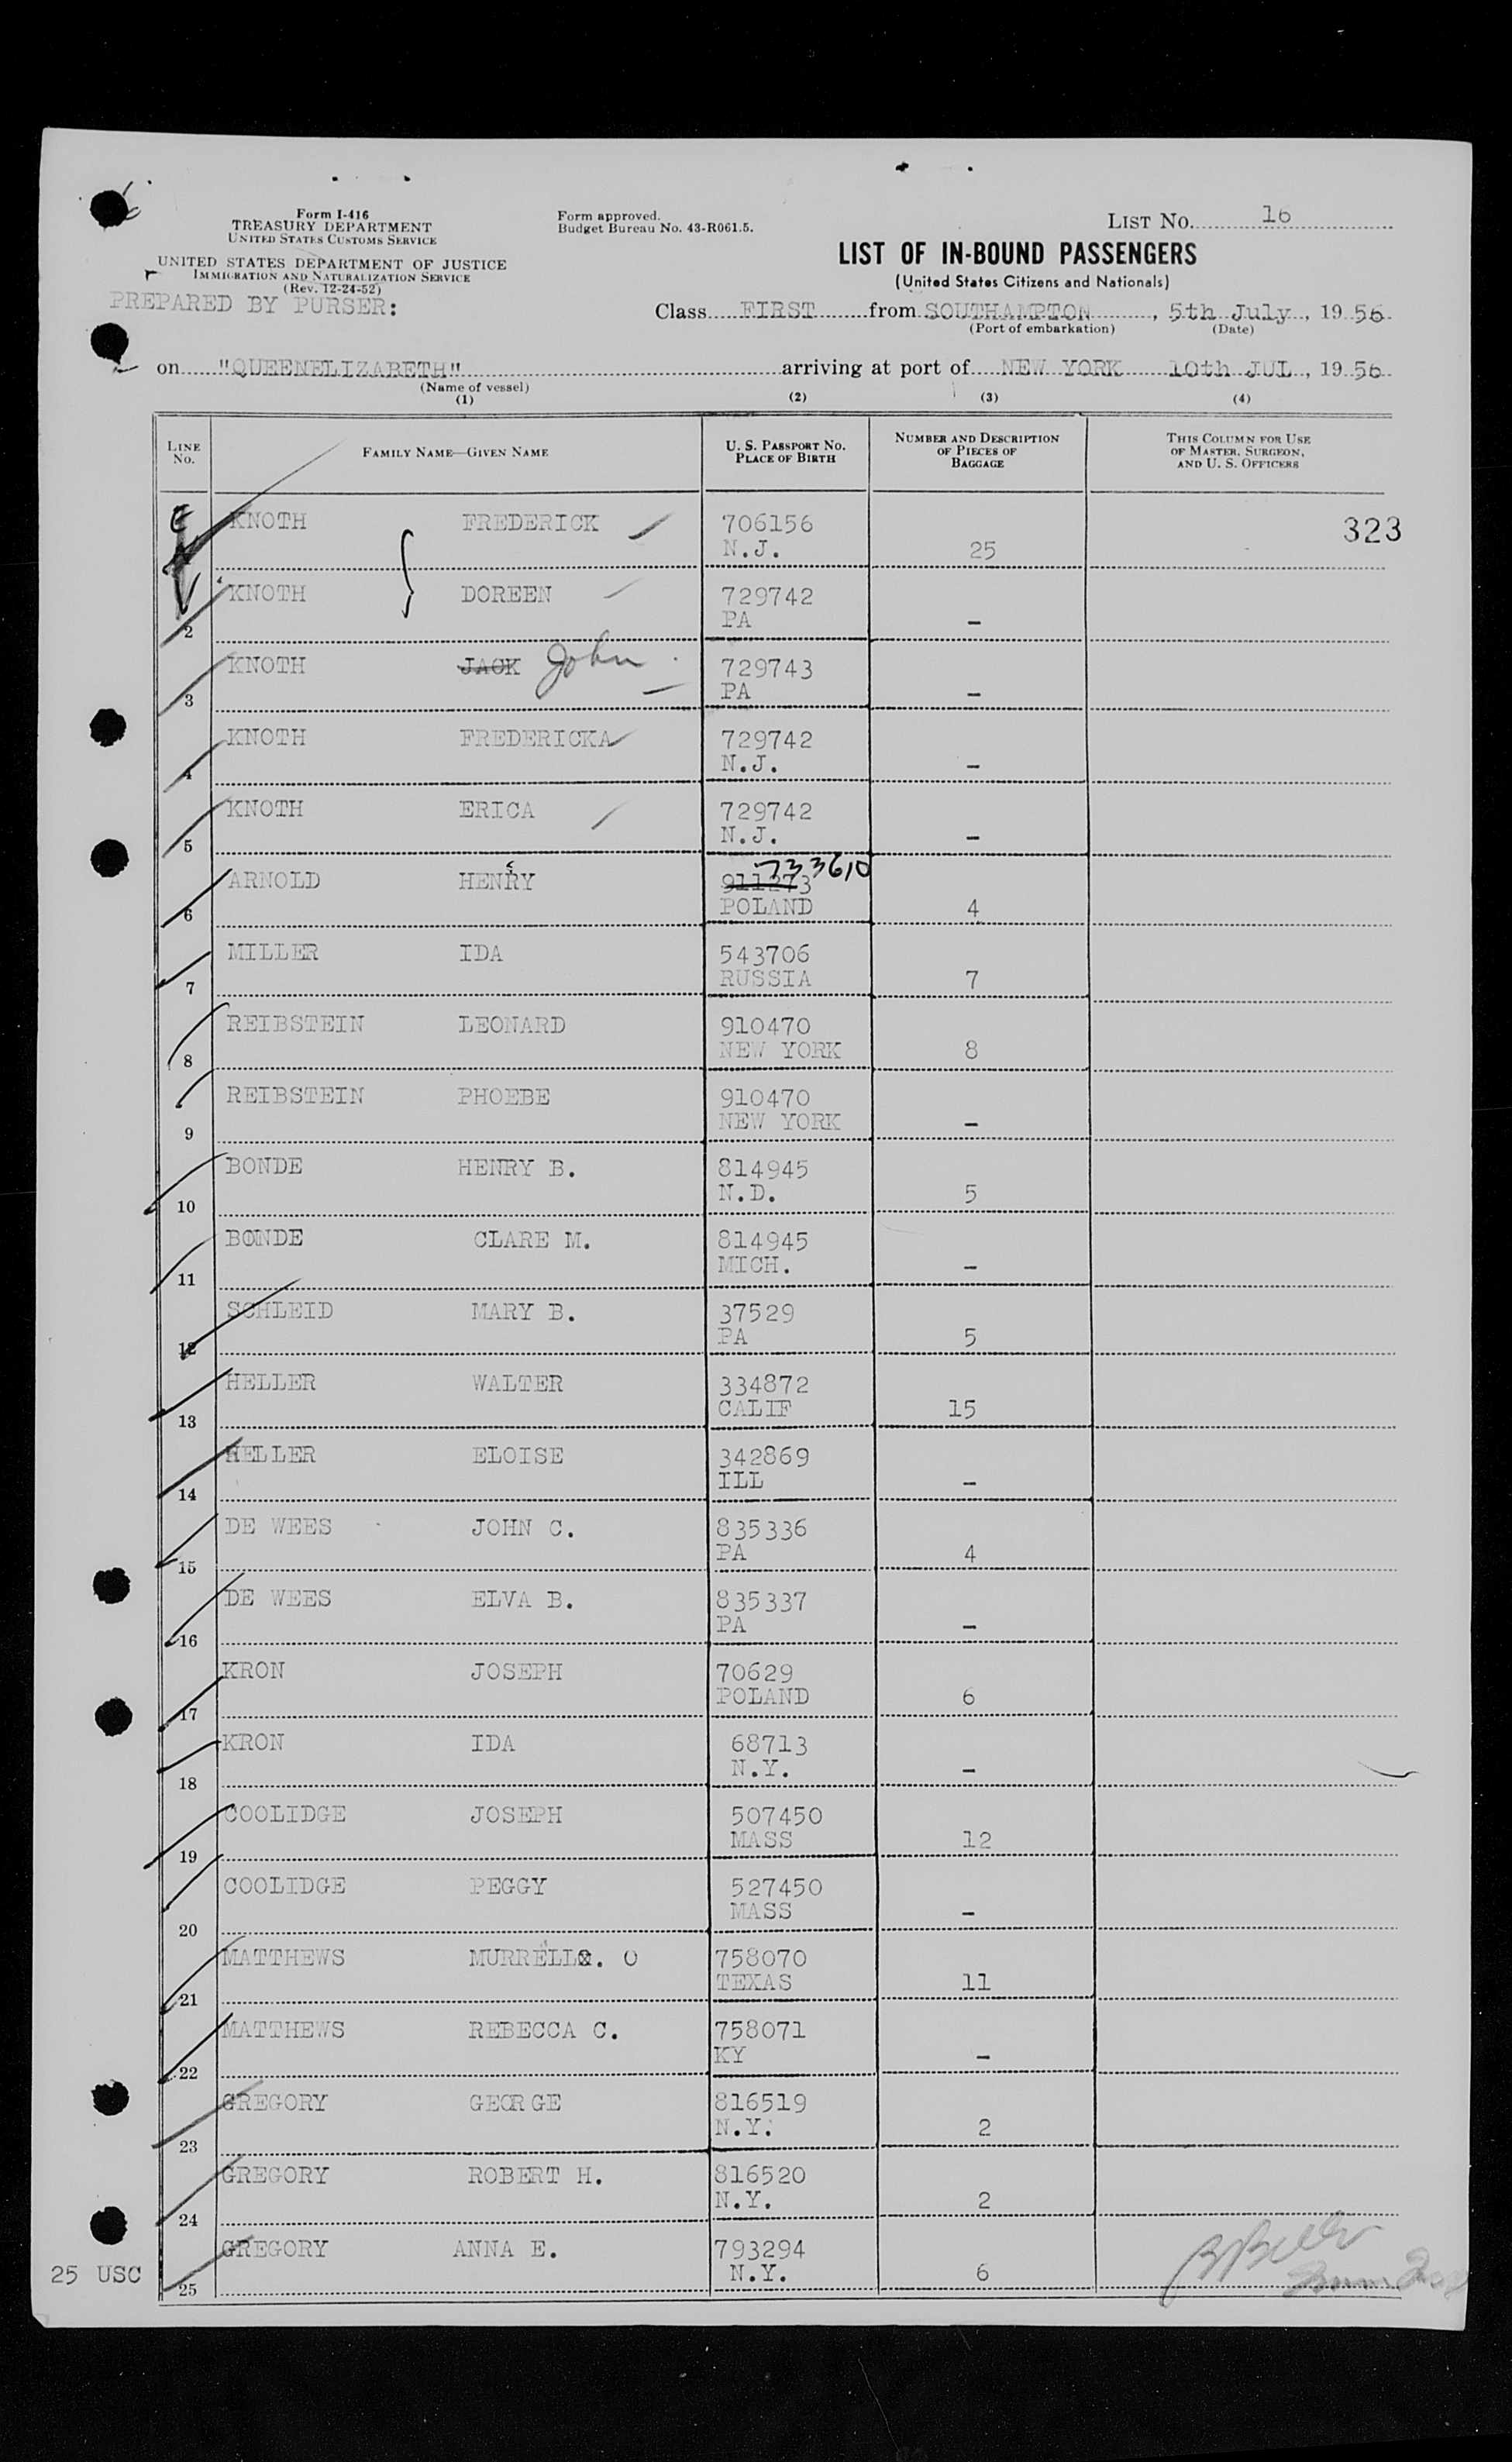 Form I-416
TREASURY DEPARTMENT
UNITED STATES CUSTOMS SERVICE
UNITED STATES DEPARTMENT OF JUSTICE
IMMIGRATION AND NATURALIZATION SERVICE
(Rev. 12-24-52)
PREPARED BY PURSER:
Form approved.
Budget Bureau No. 43-R061.5.
LIST No. 16
LIST OF IN-BOUND PASSENGERS
(United States Citizens and Nationals)
Class FIRST from SOUTHAMPTON, 5th July, 19 56
(Port of embarkation) (Date)
on "QUEENELIZABETH" arriving at port of NEW YORK 10th JUL, 19 56
(Name of vessel)
(1) (2) (3) (4)
LINE No. FAMILY NAME—GIVEN NAME U. S. PASSPORT No. PLACE OF BIRTH NUMBER AND DESCRIPTION OF PIECES OF BAGGAGE THIS COLUMN FOR USE OF MASTER, SURGEON, AND U. S. OFFICERS
KNOTH FREDERICK 706156 323
N.J. 25
KNOTH DOREEN 729742
2 PA –
KNOTH JACK John 729743
3 PA –
KNOTH FREDERICKA 729742
4 N.J. –
KNOTH ERICA 729742
5 N.J. –
733610
ARNOLD HENRY 911273
6 POLAND 4
MILLER IDA 543706
7 RUSSIA 7
REIBSTEIN LEONARD 910470
8 NEW YORK 8
REIBSTEIN PHOEBE 910470
9 NEW YORK –
BONDE HENRY B. 814945
10 N.D. 5
BONDE CLARE M. 814945
11 MICH. –
SCHLEID MARY B. 37529
12 PA 5
HELLER WALTER 334872
13 CALIF 15
HELLER ELOISE 342869
14 ILL –
DE WEES JOHN C. 835336
15 PA 4
DE WEES ELVA B. 835337
16 PA –
KRON JOSEPH 70629
17 POLAND 6
KRON IDA 68713
18 N.Y. –
COOLIDGE JOSEPH 507450
19 MASS 12
COOLIDGE PEGGY 527450
20 MASS –
MATTHEWS MURRELL. O 758070
21 TEXAS 11
MATTHEWS REBECCA C. 758071
22 KY –
GREGORY GEORGE 816519
23 N.Y. 2
GREGORY ROBERT H. 816520
24 N.Y. 2
GREGORY ANNA E. 793294
25 USC 25 N.Y. 6